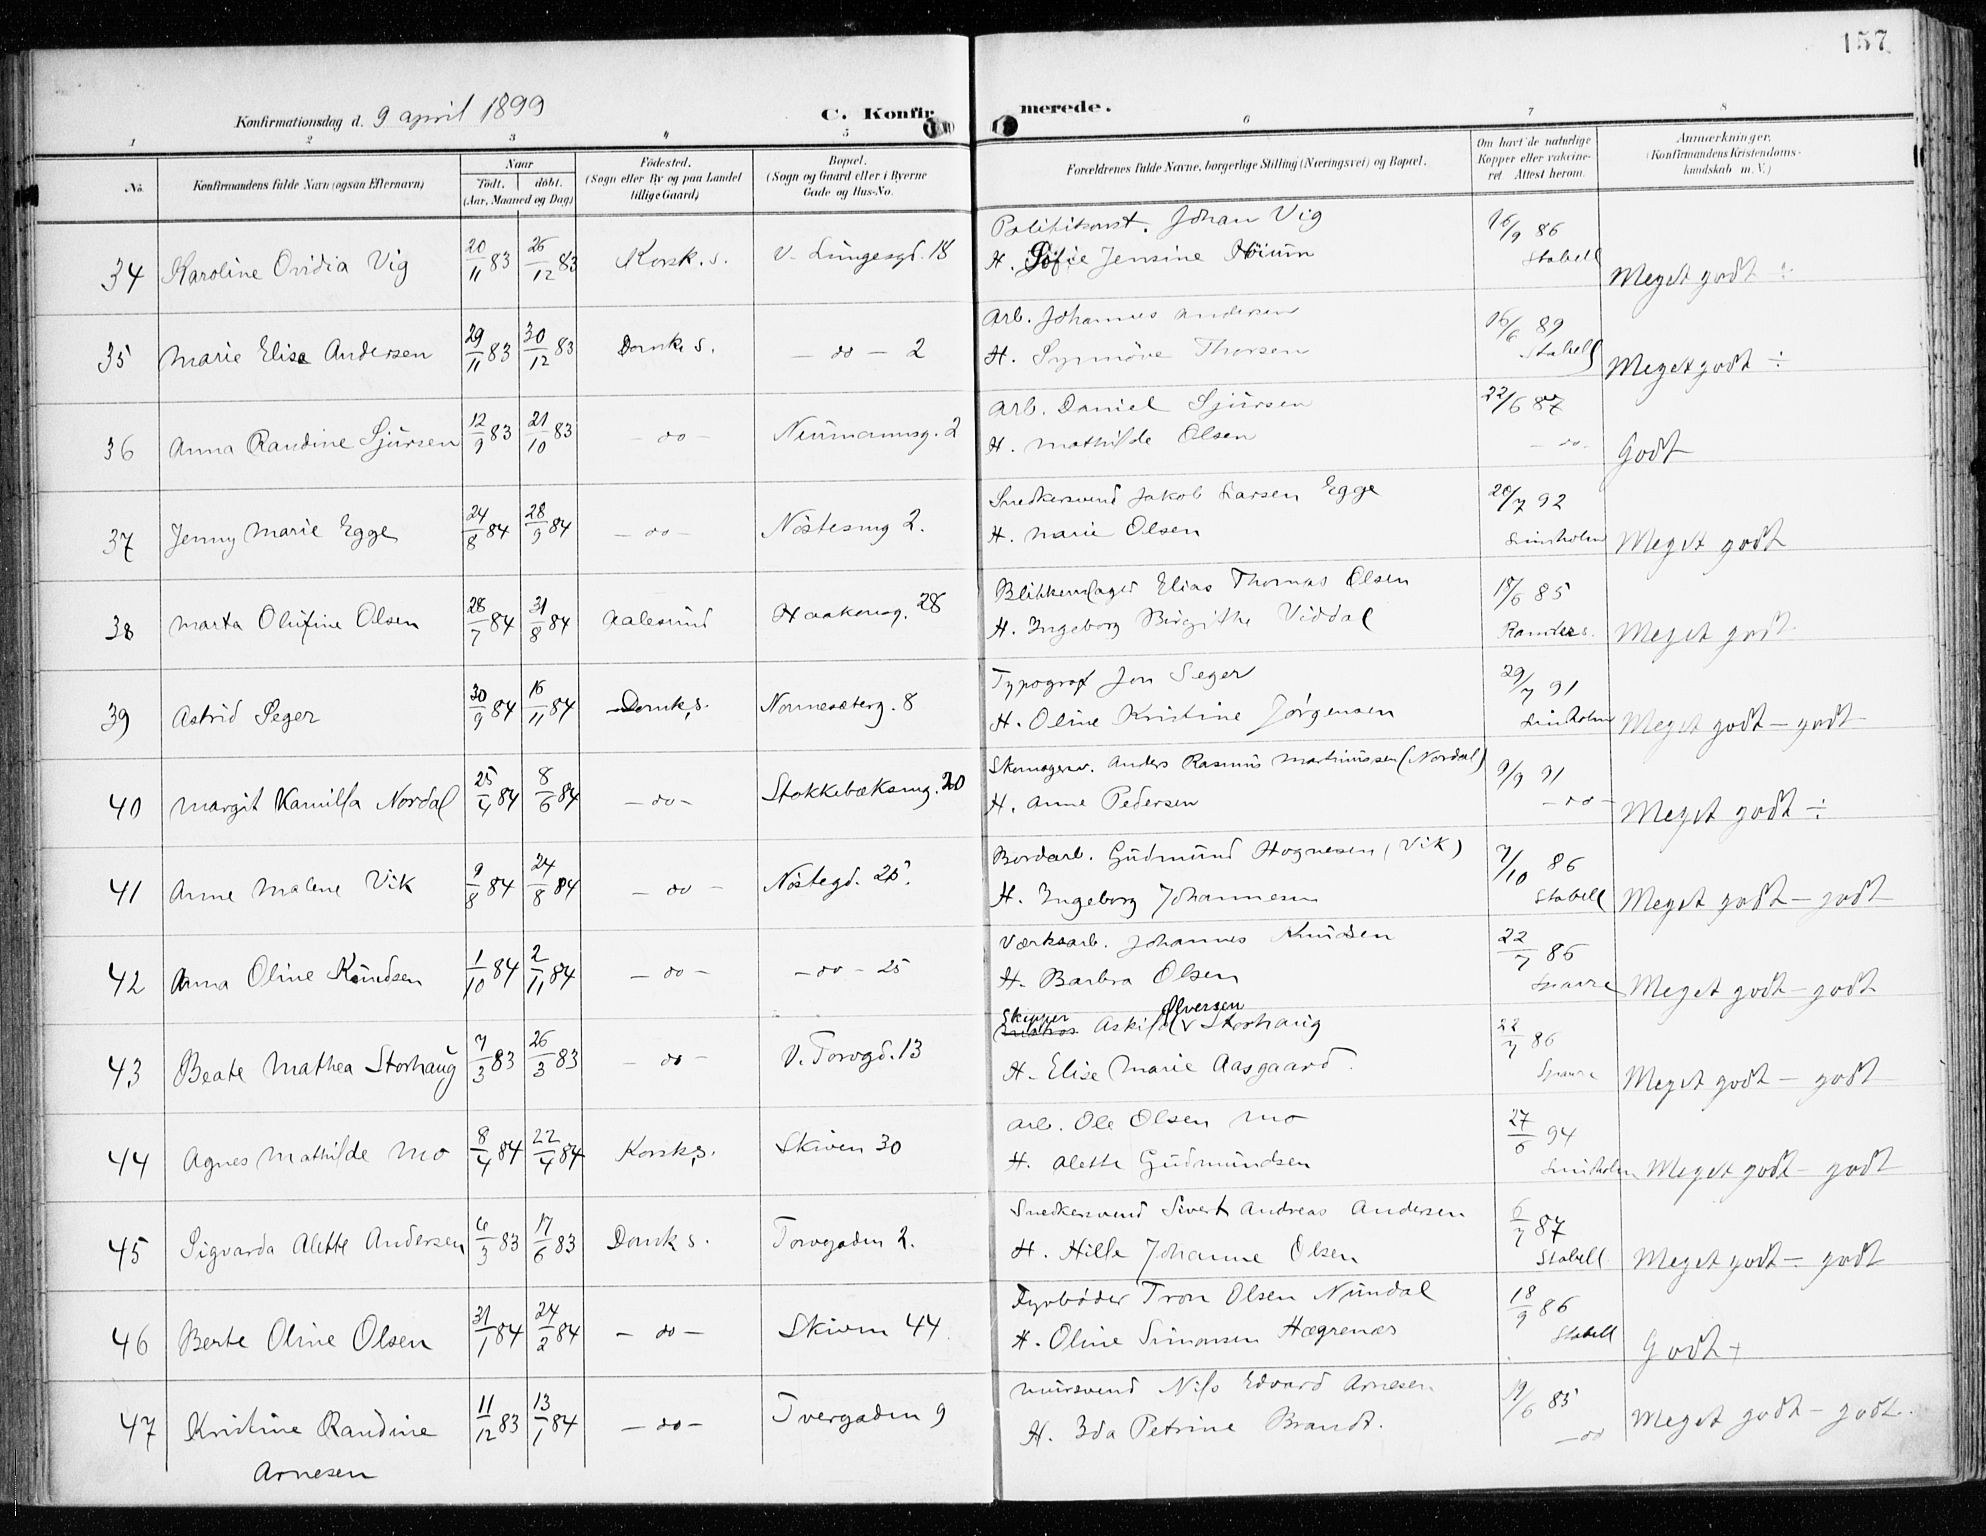 157
Konfirmationsdag d. 9 april 1899
C. Konfirmerede.
1 2 3 4 5 6 7 8
No.
Konfirmandens fulde Navn (ogsaa Efternavn)
Naar
født. døbt.
(Aar, Maaned og Dag)
Fødested.
(Sogn eller By og paa Landet
tillige Gaard)
Bopæl.
(Sogn og Gaard eller i Byerne
Gade og Hus-No.
Forældrenes fulde Navne, borgerlige Stilling (Næringsvei) og Bopæl.
Om havt de naturlige
Kopper eller vakcine-
ret. Attest herom.
Anmærkninger.
(Konfirmandens Kristendoms-
kundskab m. V.)
34 Karoline Ovidia Vig 20/11 83 26/12 83 Korsk. s. V. Lungesgd. 18
Politikonst. Johan Vig
H. Sofie Jensine Höium
16/9 86
Stabell
Meget godt ÷
35 Marie Elise Andersen 29/11 83 30/12 83 Domk s. — do — 2
Arb. Johannes Andersen
H. Synnöve Thorsen
16/6 89
Stabell
Meget godt ÷
36 Anna Randine Sjursen 12/9 83 21/10 83 — do — Neumannsg. 2
Arb. Daniel Sjursen
H. Mathilde Olsen
22/6 87
— do.
Godt
37 Jenny Marie Egge 24/8 84 28/9 84 — do — Nöstesmg 2.
Snedkersvend Jakob Larsen Egge
H. Marie Olsen
20/7 92
Meget godt
38 Marta Olufine Olsen 28/7 84 31/8 84 Aalesund Haakonsg. 28
Blikkenslager Elias Thomas Olsen
H. Ingeborg Birgithe Viddal
18/6 85
Randers.
Meget godt.
39 Astrid Seger 30/9 84 16/11 84 Domk s. Nonneseterg. 8
Typograf Jon Seger
H. Oline Kristine Jörgensen
29/7 91
Meget godt — godt
40 Margit Kamilla Nordal 25/4 84 8/6 84 — do — Stokkebæksmg. 20
Skomagersv. Anders Rasmus Martinussen (Nordal)
H. Anne Pedersen
9/9 91
— do —
Meget godt ÷
41 Anne Malene Vik 9/8 84 24/8 84 — do — Nöstegd. 25.
Bordarb. Gudmund Hognesen (Vik)
H. Ingeborg Johannesen
7/10 86
Stabell
Meget godt — godt
42 Anna Oline Knudsen 1/10 84 2/11 84 — do — — do — 25
Værksarb. Johannes Knudsen
H. Barbra Olsen
22/7 86
Meget godt — godt
43 Beate Mathea Storhaug 7/3 83 26/3 83 — do — V. Torvgd. 13
Skipper Alversen
Askild v Storhaug
H. Elise Marie Aasgaard.
22/7 86
Meget godt — godt
44 Agnes Mathilde Mo 8/4 84 22/4 84 Korsk s. Skiven 30
Arb. Ole Olsen Mo
H. Alette Gudmundsen
27/6 94
Meget godt — godt
45 Sigvarda Alette Andersen 6/3 83 17/6 83 Domk s. Torvgaden 2.
Snedkersvend Sivert Andreas Andersen
H. Hille Johanne Olsen
6/7 87
Stabell
Meget godt — godt
46 Berte Oline Olsen 31/1 84 24/2 84 — do — Skiven 44.
Fyrböder Tron Olsen Nundal
H. Oline Simonsen Hægrenæs
18/9 86
Stabell
Godt +
47 Kristine Randine 11/12 83 13/1 84 — do — Tvergaden 9
Arnesen
Mursvend Nils Edvard Arnesen
H. Ida Petrine Brandt.
19/6 85
— do
Meget godt — godt.